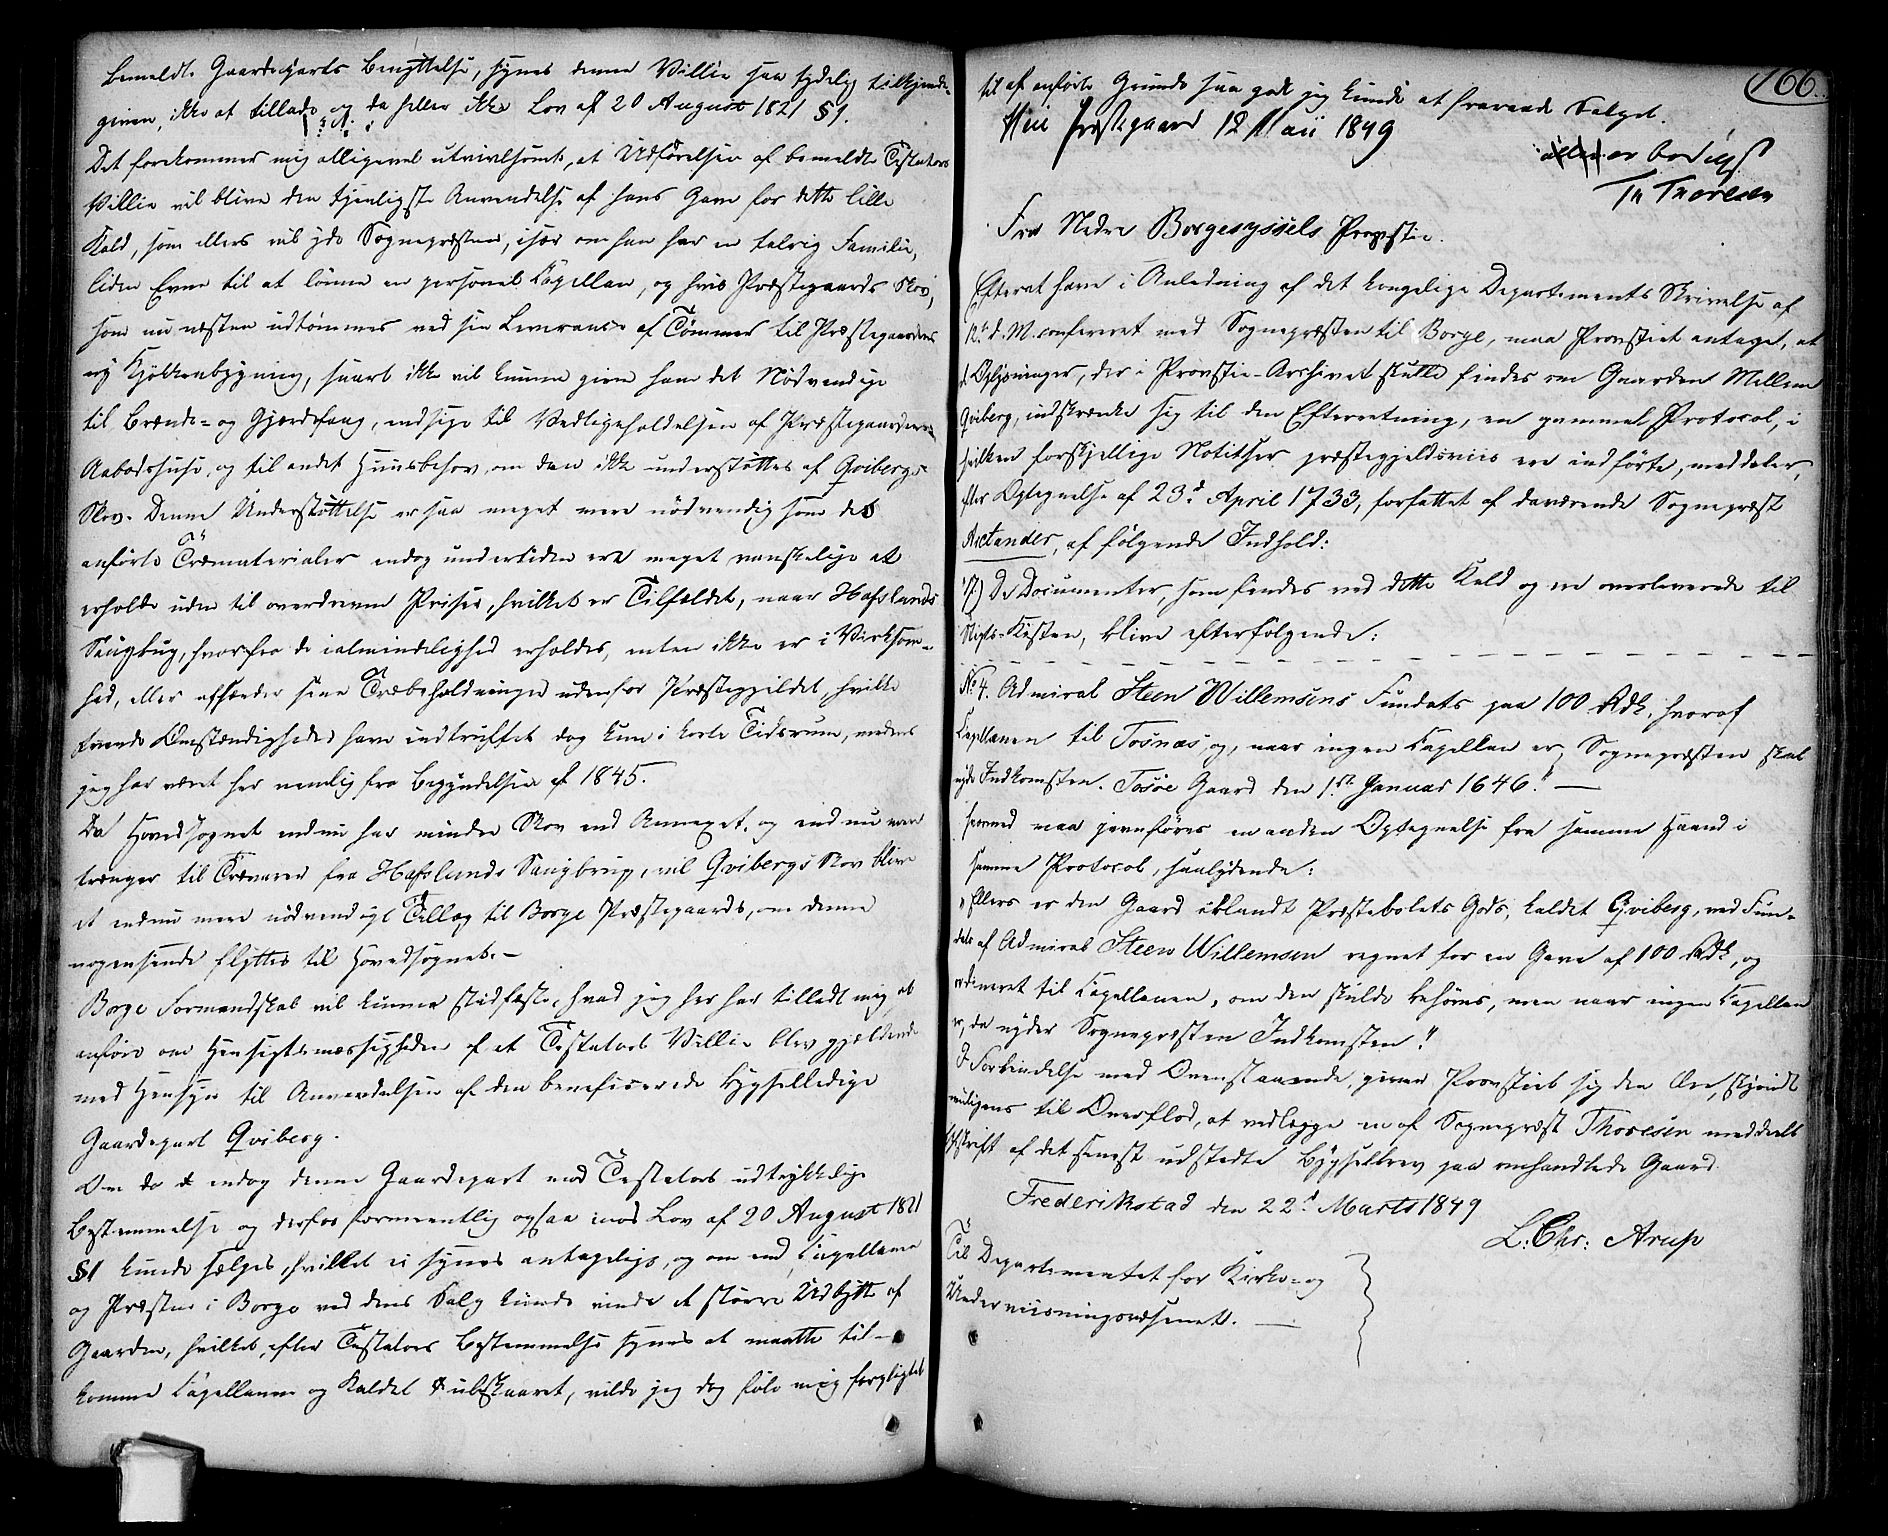 bemeldte Gaardeparts Benyttelse, synes denne Villie saa tydelig tilkjende-
given, ikke at tillade og da heller ikke Lov af 20 August 1821 §1.
Det forekommer mig alligevel utvivlsomt, at Udførelsen af bemeldte Testators
Villie vil blive den tjenligste Anvendelse af hans Gave for dette lille
Kald, som ellers vil yde Sognepræsten, især om han har en talrig Familie,
liden Evne til at lønne en personel Capellan, og hvis Præstegaards Skov,
som nu næsten udtømmes ved sin Leverance af Tømmer til Præstegaardens
ny Kjøkkenbygning, snart ikke vil kunne give ham det Nødvendige
til Brænde- og Gjærdefang, endsige til Vedligeholdelsen af Præstegaardens
Aabodshuse, og til andet Huusbehov, om den ikke understøttes af Qvibergs
Skov. Denne Understøttelse er saa meget mere nødvendig som de
anførte Træmaterialer endog undertiden ere meget vanskelige at
erholde uden til overdrevne Priser, hvilket er Tilfældet, naar Hafslunds
Saugbrug, hvorfra de i almindelighed erholdes, enten ikke er i Virksom-
hed, eller afsender sine Træbeholdninger udenfor Præstegjeldet, hvilke
tvende Omstændigheder have indtruffet dog kun i korte Tidsrum, medens
jeg har været her nemlig fra Begyndelsen af 1845.
Da Hovedsognet endnu har mindre Skov end Annexet, og endnu mere
trænger til Trævarer fra Hafslunds Saugbrug, vil Qvibergs Skov blive
et endnu mere nødvendigt Tillæg til Borge Præstegaards, om denne
nogensinde flyttes til Hovedsognet. —
Borge Formandskab vil kunne stadfæste, hvad jeg her har tilladt mig at
anføre om Hensigtsmæssigheden af at Testators Villie blev gjældende
med Hensyn til Anvendelsen af den beneficerede bygselledige
Gaardepart Qviberg.
Om da endog denne Gaardepart mod Testators udtrykkelige
Bestemmelse og derfor formeentlig ogsaa mod Lov af 20 August 1821
§1 kunde sælges, hvilket ei synes antageligt, og om end Capellanen
og Præsten i Borge ved dens Salg kunde vinde et større Udbytte af
Gaarden, hvilket, efter Testators Bestemmelse synes at maatte til-
komme Capellanen og Kaldet ubeskaaret, vilde jeg dog føle mig forpligtet
166.
til af anførte Grunde saa godt jeg kunde at fraraade Salget.
Huie Præstegaard 12 Marts 1849
ærbødigst
Th Thoresen
Fra Nedre Borgesyssels Provstie.
Efterat have i Anledning af det kongelige Departements Skrivelse af
12te d. M. confereret med Sognepræsten til Borge, maa Provstiet antage, at
de Oplysninger, der i Provstie-Archivet skulle findes om Gaarden Mellem
Qviberg, indskrænke sig til den Efterretning, en gammel Protocol, i
hvilken forskjellige Notitser præstegjeldsviis ere indførte, meddeler,
efter Optegnelse af 23d April 1733, forfattet af daværende Sognepræst
Arctander, af følgende Indhold:
"17) De Documenter, som findes ved dette Kald og ere overleverede til
Stifts-Kisten, blive efterfølgende:
No 4. Admiral Steen Willemsens Fundats paa 100 Rdl., hvoraf
Capellanen til Tosnæs, og, naar ingen Capellan er, Sognepræsten skal
nyde Indkomsten. Tosøe Gaard den 1ste Januar 1646." —
Hermed maa jevnføres en anden Optegnelse fra samme Haand i
samme Protocol, saalydende:
"Ellers er den Gaard iblandt Præstebolets Gods, kaldet Qviberg, ved Fun-
dats af Admiral Steen Willemsen regnet for en Gave af 100 Rdl., og
ordineret til Capellanen, om den skulde behøves, men naar ingen Capellan
er, da nyder Sognepræsten Indkomsten."
I Forbindelse med Ovenstaaende, giver Provstiet sig den Ære, skjøndt
muligens til Overflod, at vedlægge en af Sognepræst Thoresen meddeelt
Afskrift af det senest udstedte Bygselbrev paa omhandlede Gaard.
Frederikstad den 22d Marts 1849
L. Chr: Arup
Til Departementet for Kirke- og
Underviisningsvæsenet. —